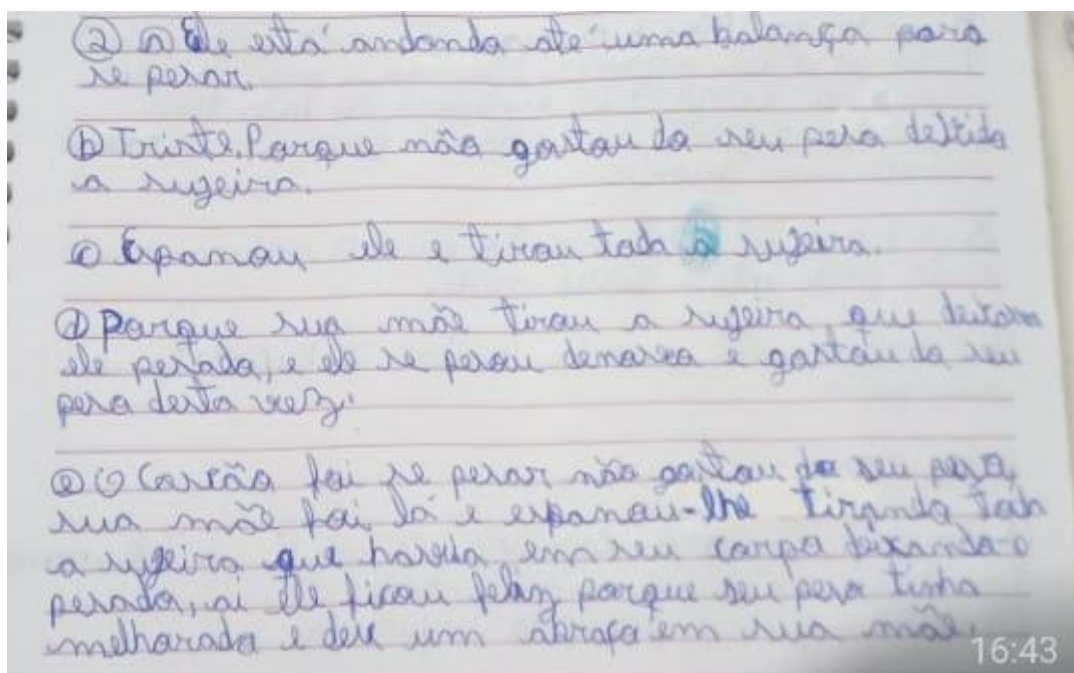 ② a Ele está andando até uma balança para
se pesar.
b Triste. Porque não gostou do seu peso devido
a sujeira.
c Espanou ele e tirou toda a sujeira.
d Porque sua mãe tirou a sujeira, que deixava
ele pesado, e ele se pesou de novo e gostou do seu
peso desta vez.
e O Cascão foi se pesar não gostou do seu peso,
sua mãe foi lá e espanou-lhe tirando toda
a sujeira que havia em seu corpo deixando-o
pesado, ai ele ficou feliz porque seu peso tinha
melhorado e deu um abraço em sua mãe.
16:43